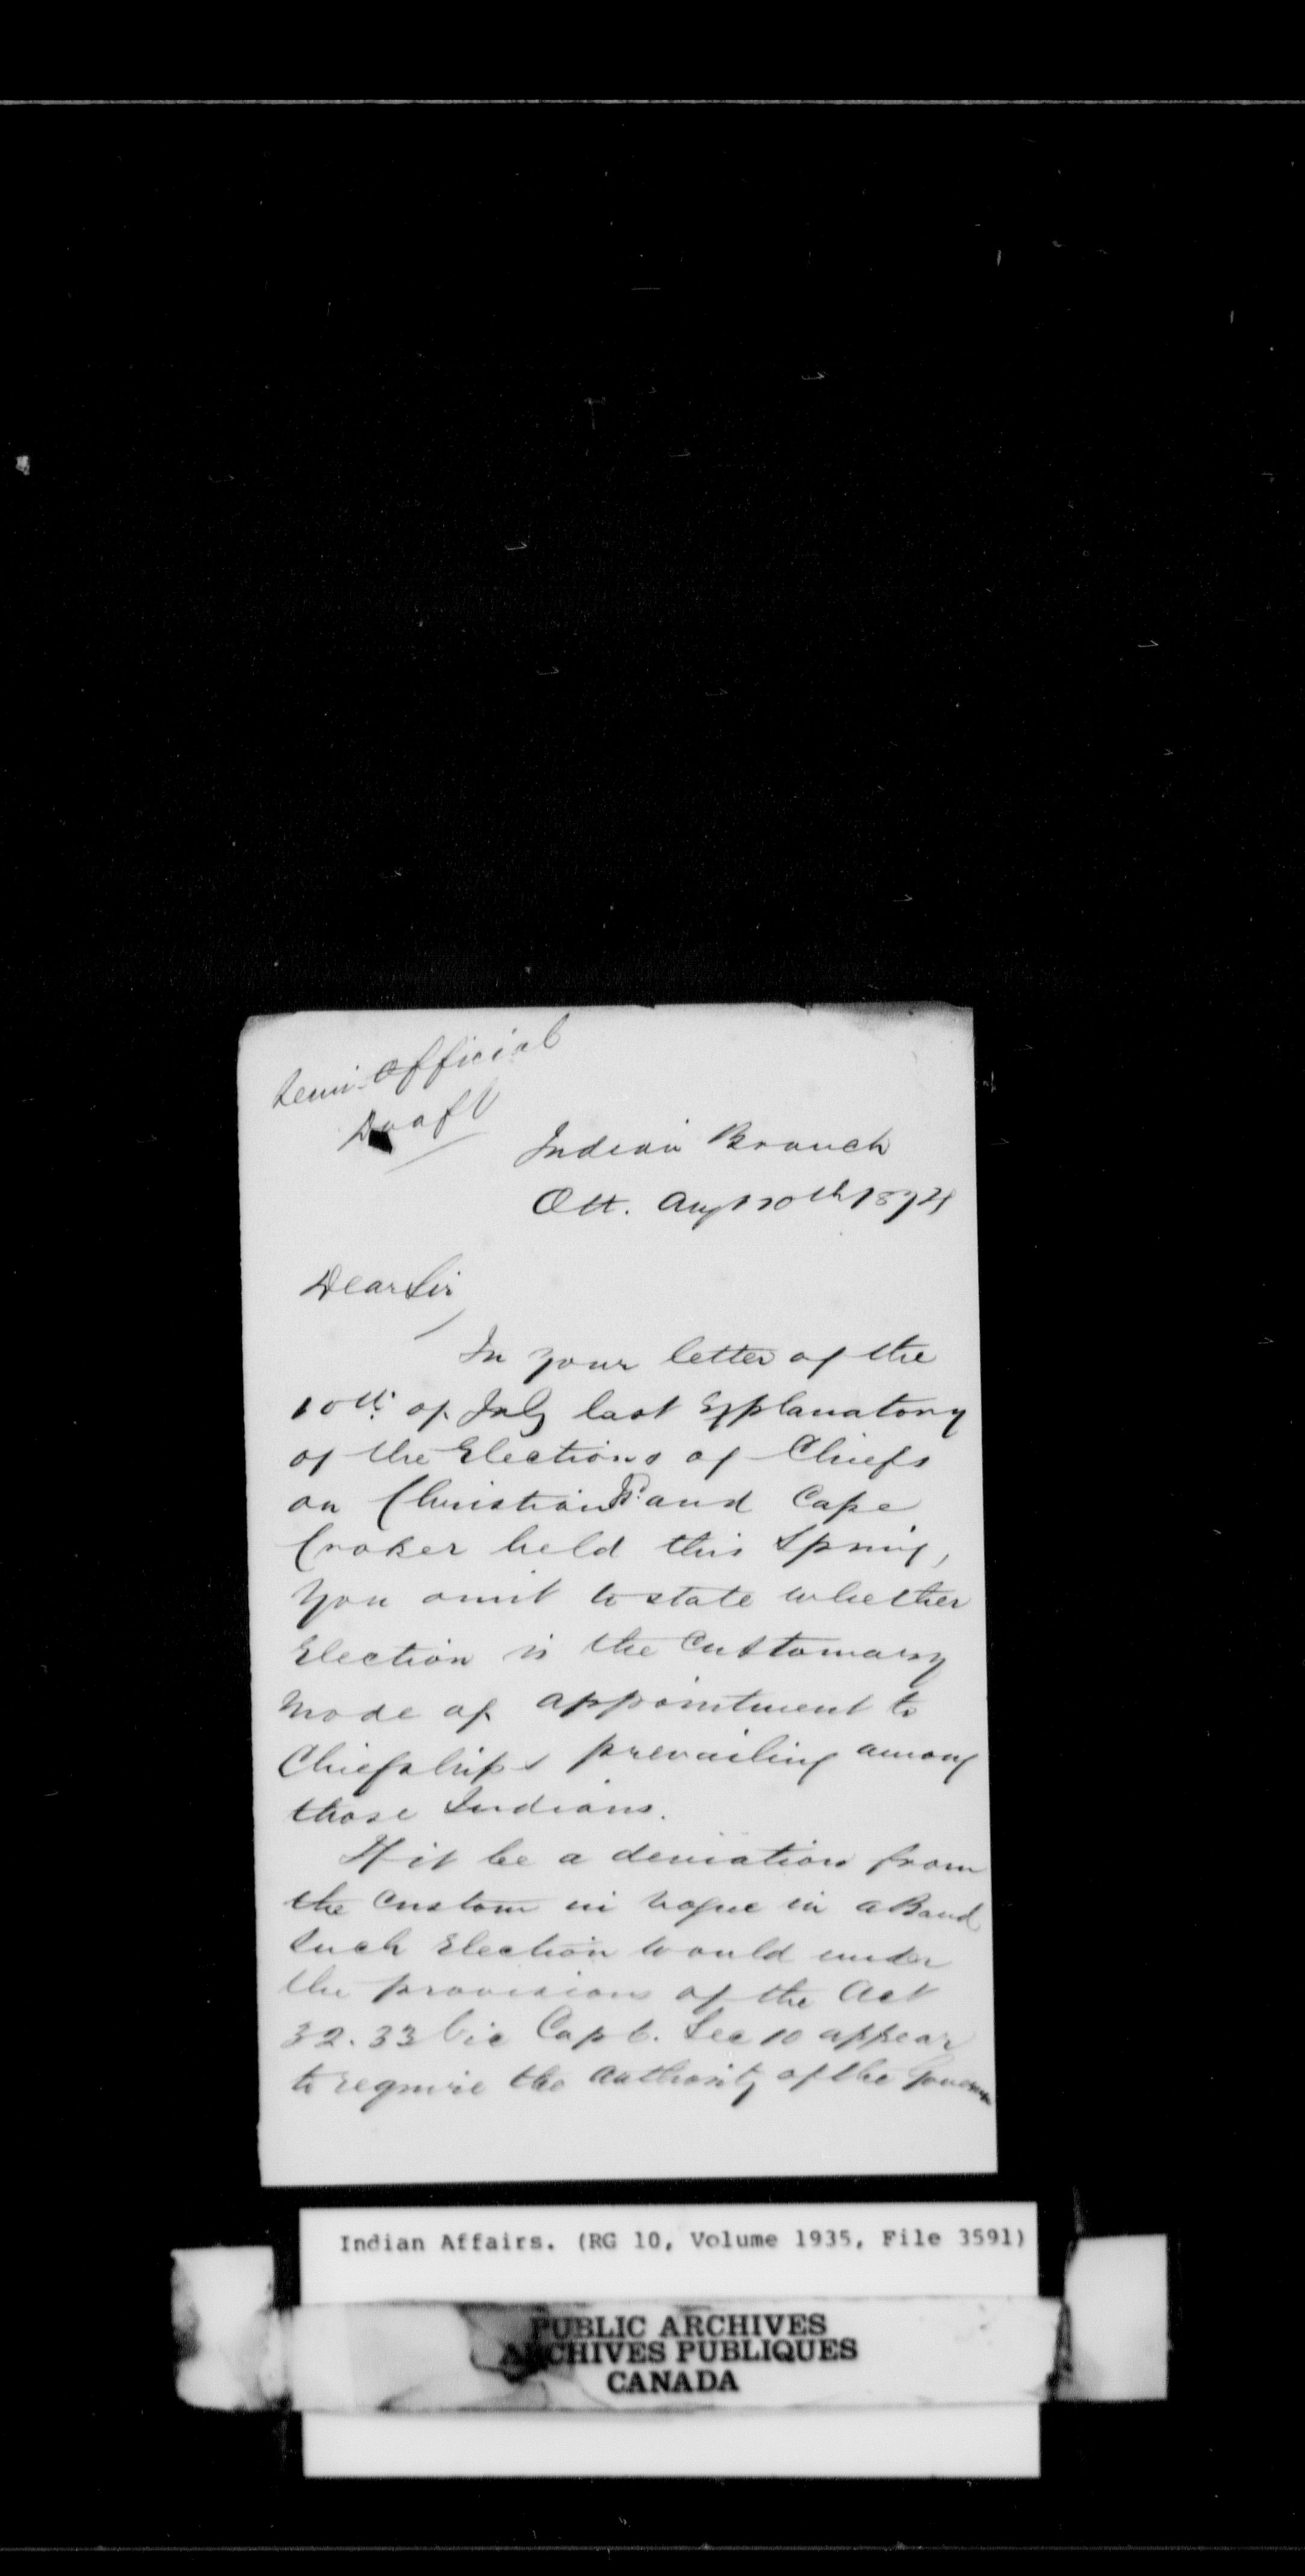 Semi-Official
Draft
Indian Branch
Ott. Augt 20th 1874
Dear Sir
In your letter of the
10th. of July last Explanatory
of the Elections of Chiefs
on Christian Id. and Cape
Croker held this Spring,
You omit to state whether
Election is the Customary
Mode of appointment to
Chiefships prevailing among
those Indians.
If it be a deviation from
the Custom in vogue in a Band
Such Election would under
the provisions of the Act
32.33 Vic Cap 6. Sec 10 appear
to require the Authority of the Governor
Indian Affairs. (RG 10, Volume 1935, File 3591)
PUBLIC ARCHIVES
ARCHIVES PUBLIQUES
CANADA